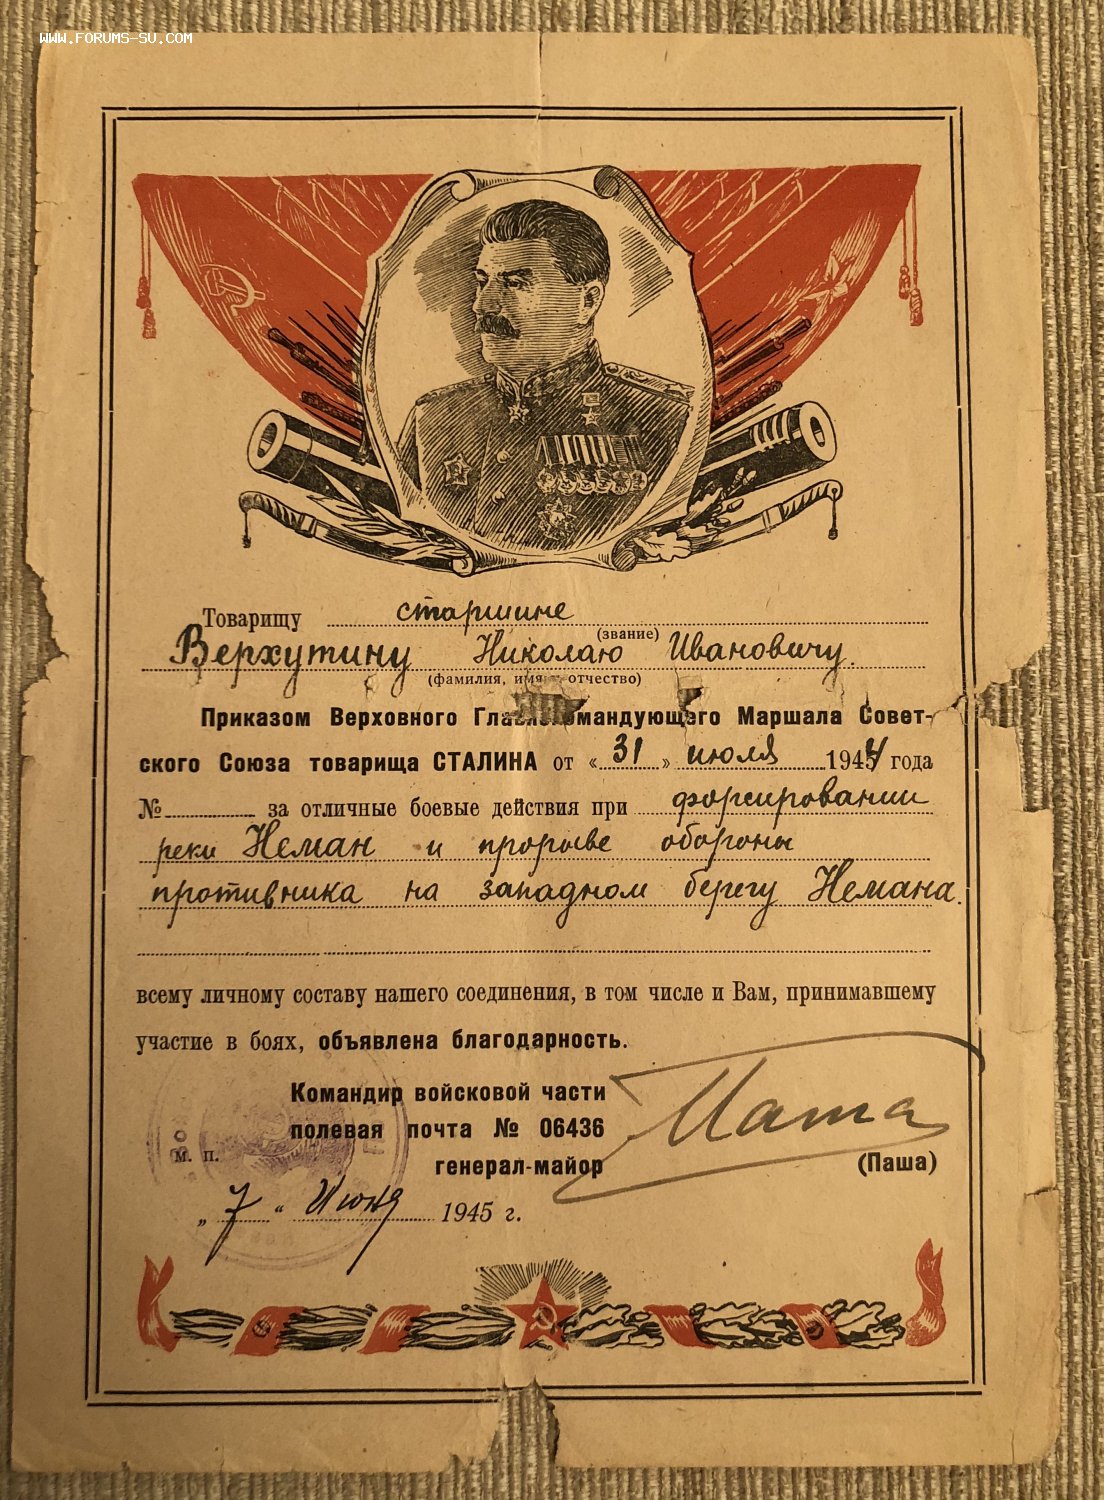 WWW.FORUMS-SU.COM
Товарищу старшине
(звание)
Верхутину Николаю Ивановичу.
(фамилия, имя отчество)
Приказом Верховного Главнокомандующего Маршала Совет-
ского Союза товарища СТАЛИНА от «31» июля 1944 года
№ за отличные боевые действия при форсировании
реки Неман и прорыве обороны
противника на западном берегу Немана.
всему личному составу нашего соединения, в том числе и Вам, принимавшему
участие в боях, объявлена благодарность.
Командир войсковой части
полевая почта № 06436
м. п.
генерал-майор Паша (Паша)
„7“ Июня 1945 г.